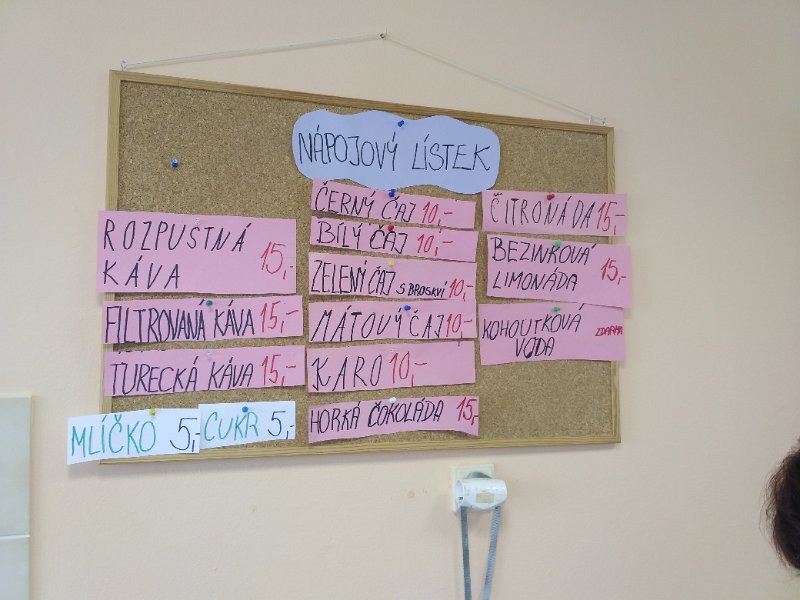 NÁPOJOVÝ LÍSTEK
ROZPUŠTNÁ
KÁVA 15,-
FILTROVANÁ KÁVA 15,-
TURECKÁ KÁVA 15,-
MLÍČKO 5,-
CUKR 5,-
ČERNÝ ČAJ 10,-
BÍLÝ ČAJ 10,-
ZELENÝ ČAJ S BROSKVÍ 10,-
MÁTOVÝ ČAJ 10,-
KARO 10,-
HORKÁ ČOKOLÁDA 15,-
CITRONÁDA 15,-
BEZINKOVÁ
LIMONÁDA 15,-
KOHOUTKOVÁ
VODA ZDARMA